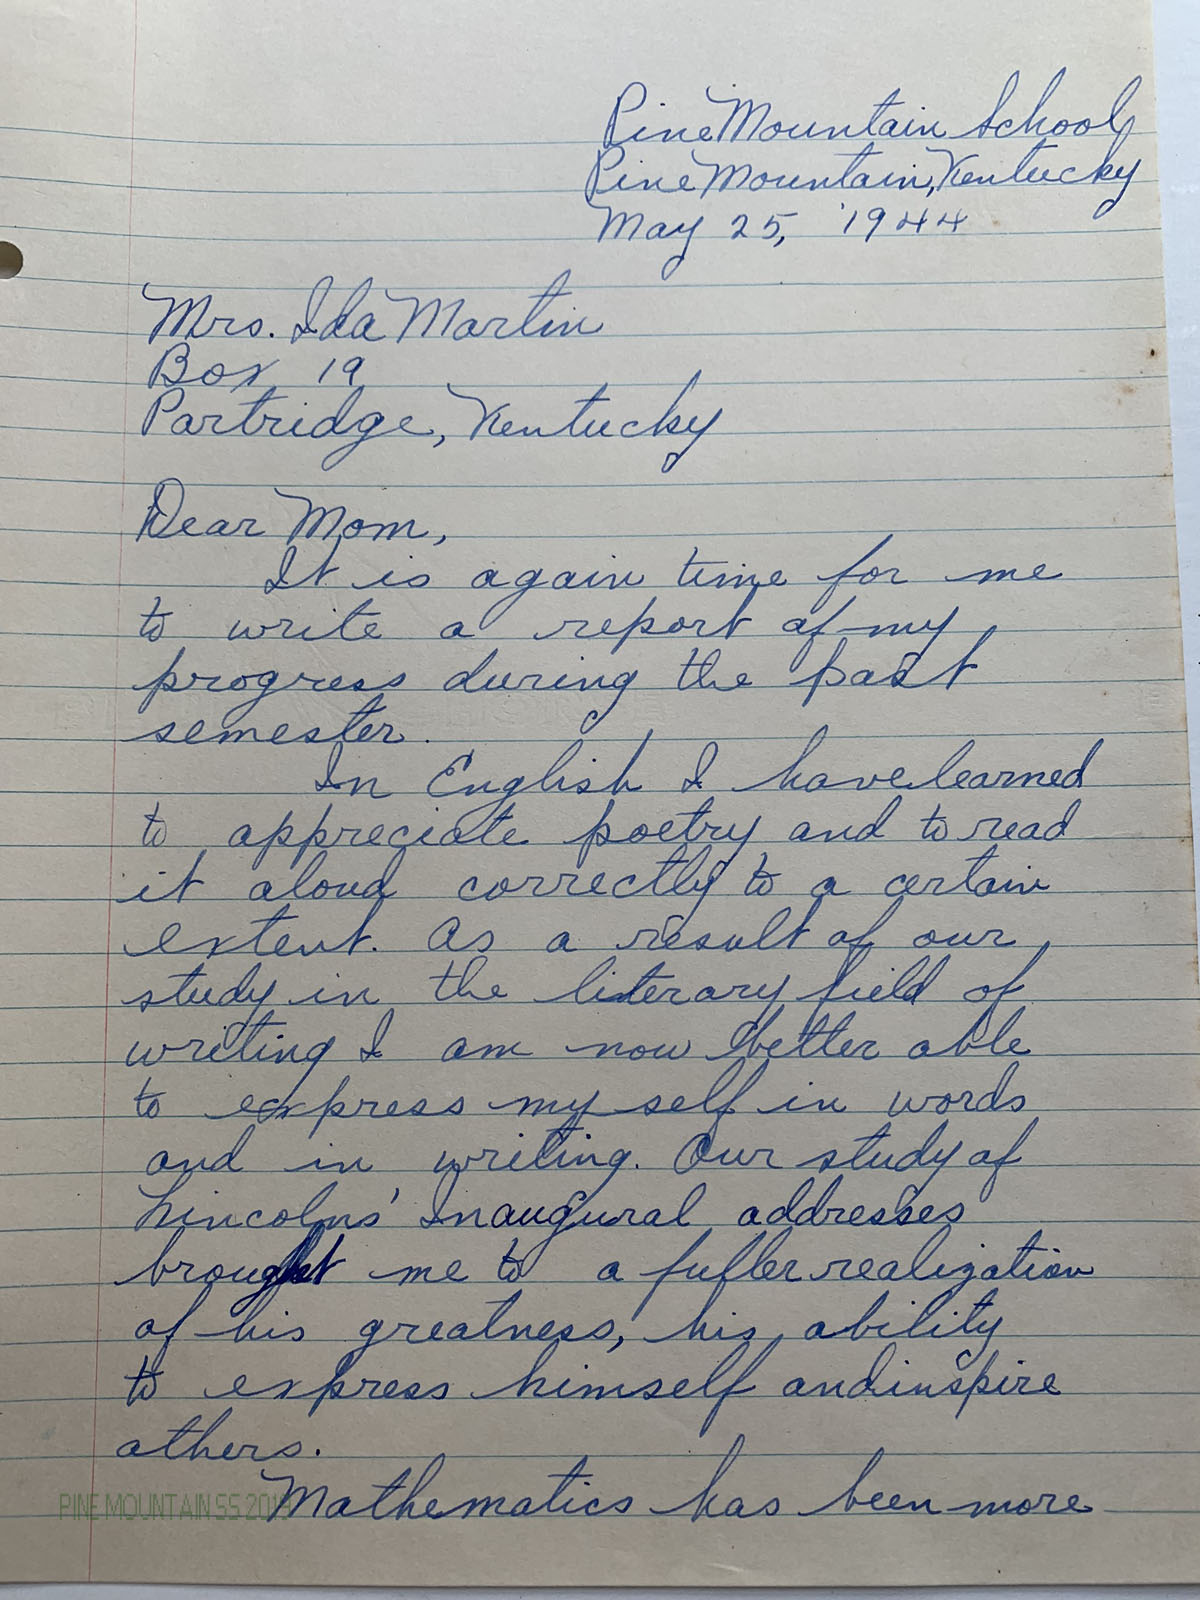 Pine Mountain School
Pine Mountain, Kentucky
May 25, 1944
Mrs. Ida Martin
Box 19
Partridge, Kentucky
Dear Mom,
It is again time for me
to write a report of my
progress during the past
semester.
In English I have learned
to appreciate poetry and to read
it aloud correctly to a certain
extent. As a result of our
study in the literary field of
writing I am now better able
to express my self in words
and in writing. Our study of
Lincolns' Inaugural addresses
brought me to a fuller realization
of his greatness, his ability
to express himself and inspire
others.
PINE MOUNTAIN SS 2019
Mathematics has been more